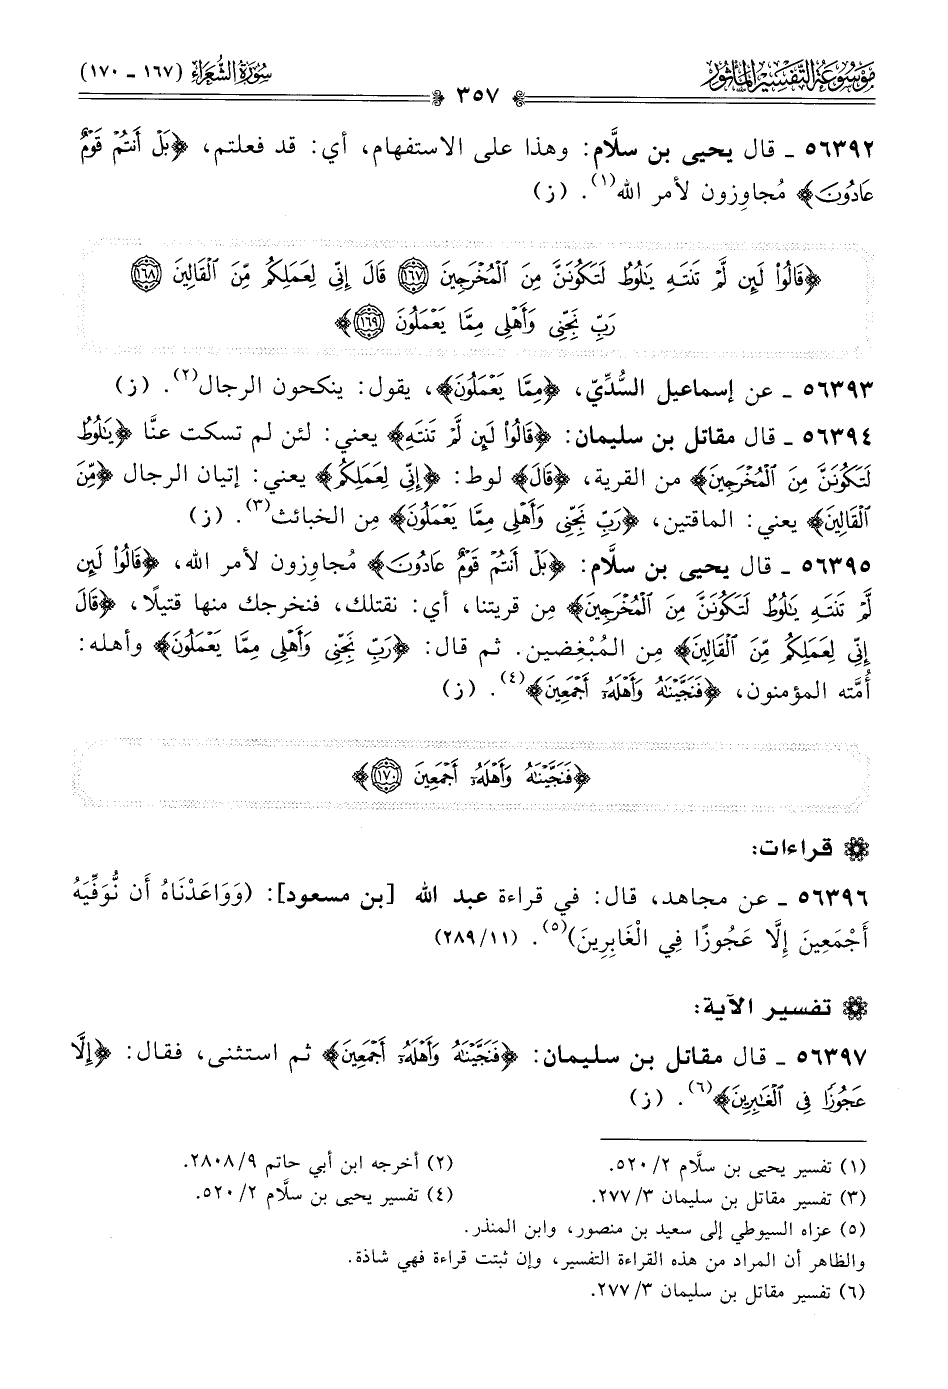 مَوْسُوعَةُ التَّفْسِيرِ المَأْثُورِ
٣٥٧
سُورَةُ الشُّعَرَاءِ (١٦٧ - ١٧٠)
٥٦٣٩٢ - قال يحيى بن سلَّام: وهذا على الاستفهام، أي: قد فعلتم، ﴿بَلْ أَنتُمْ قَوْمٌ
عَادُونَ﴾ مُجاوِزون لأمر الله(١). (ز)
﴿قَالُوا۟ لَئِن لَّمْ تَنتَهِ يَٰلُوطُ لَتَكُونَنَّ مِنَ ٱلْمُخْرَجِينَ ١٦٧ قَالَ إِنِّي لِعَمَلِكُم مِّنَ ٱلْقَالِينَ ١٦٨
رَبِّ نَجِّنِي وَأَهْلِي مِمَّا يَعْمَلُونَ ١٦٩﴾
٥٦٣٩٣ - عن إسماعيل السُّدِّيّ، ﴿مِمَّا يَعْمَلُونَ﴾، يقول: ينكحون الرجال(٢). (ز)
٥٦٣٩٤ - قال مقاتل بن سليمان: ﴿قَالُوا۟ لَئِن لَّمْ تَنتَهِ﴾ يعني: لئن لم تسكت عنَّا ﴿يَٰلُوطُ
لَتَكُونَنَّ مِنَ ٱلْمُخْرَجِينَ﴾ من القرية، ﴿قَالَ﴾ لوط: ﴿إِنِّي لِعَمَلِكُم﴾ يعني: إتيان الرجال ﴿مِّنَ
ٱلْقَالِينَ﴾ يعني: الماقتين، ﴿رَبِّ نَجِّنِي وَأَهْلِي مِمَّا يَعْمَلُونَ﴾ مِن الخبائث(٣). (ز)
٥٦٣٩٥ - قال يحيى بن سلَّام: ﴿بَلْ أَنتُمْ قَوْمٌ عَادُونَ﴾ مُجاوِزون لأمر الله، ﴿قَالُوا۟ لَئِن
لَّمْ تَنتَهِ يَٰلُوطُ لَتَكُونَنَّ مِنَ ٱلْمُخْرَجِينَ﴾ مِن قريتنا، أي: نقتلك، فنخرجك منها قتيلًا، ﴿قَالَ
إِنِّي لِعَمَلِكُم مِّنَ ٱلْقَالِينَ﴾ مِن المُبْغِضين. ثم قال: ﴿رَبِّ نَجِّنِي وَأَهْلِي مِمَّا يَعْمَلُونَ﴾ وأهله:
أُمَّته المؤمنون، ﴿فَنَجَّيْنَٰهُ وَأَهْلَهُۥٓ أَجْمَعِينَ﴾(٤). (ز)
﴿فَنَجَّيْنَٰهُ وَأَهْلَهُۥٓ أَجْمَعِينَ ١٧٠﴾
قراءات:
٥٦٣٩٦ - عن مجاهد، قال: في قراءة عبد الله [بن مسعود]: (وَوَاعَدْنَاهُ أَن نُّوَفِّيَهُ
أَجْمَعِينَ إِلَّا عَجُوزًا فِي الْغَابِرِينَ)(٥). (٢٨٩/١١)
تفسير الآية:
٥٦٣٩٧ - قال مقاتل بن سليمان: ﴿فَنَجَّيْنَٰهُ وَأَهْلَهُۥٓ أَجْمَعِينَ﴾ ثم استثنى، فقال: ﴿إِلَّا
عَجُوزًا فِي ٱلْغَٰبِرِينَ﴾(٦). (ز)
(١) تفسير يحيى بن سلَّام ٥٢٠/٢.
(٢) أخرجه ابن أبي حاتم ٢٨٠٨/٩.
(٣) تفسير مقاتل بن سليمان ٢٧٧/٣.
(٤) تفسير يحيى بن سلَّام ٥٢٠/٢.
(٥) عزاه السيوطي إلى سعيد بن منصور، وابن المنذر.
والظاهر أن المراد من هذه القراءة التفسير، وإن ثبتت قراءة فهي شاذة.
(٦) تفسير مقاتل بن سليمان ٢٧٧/٣.